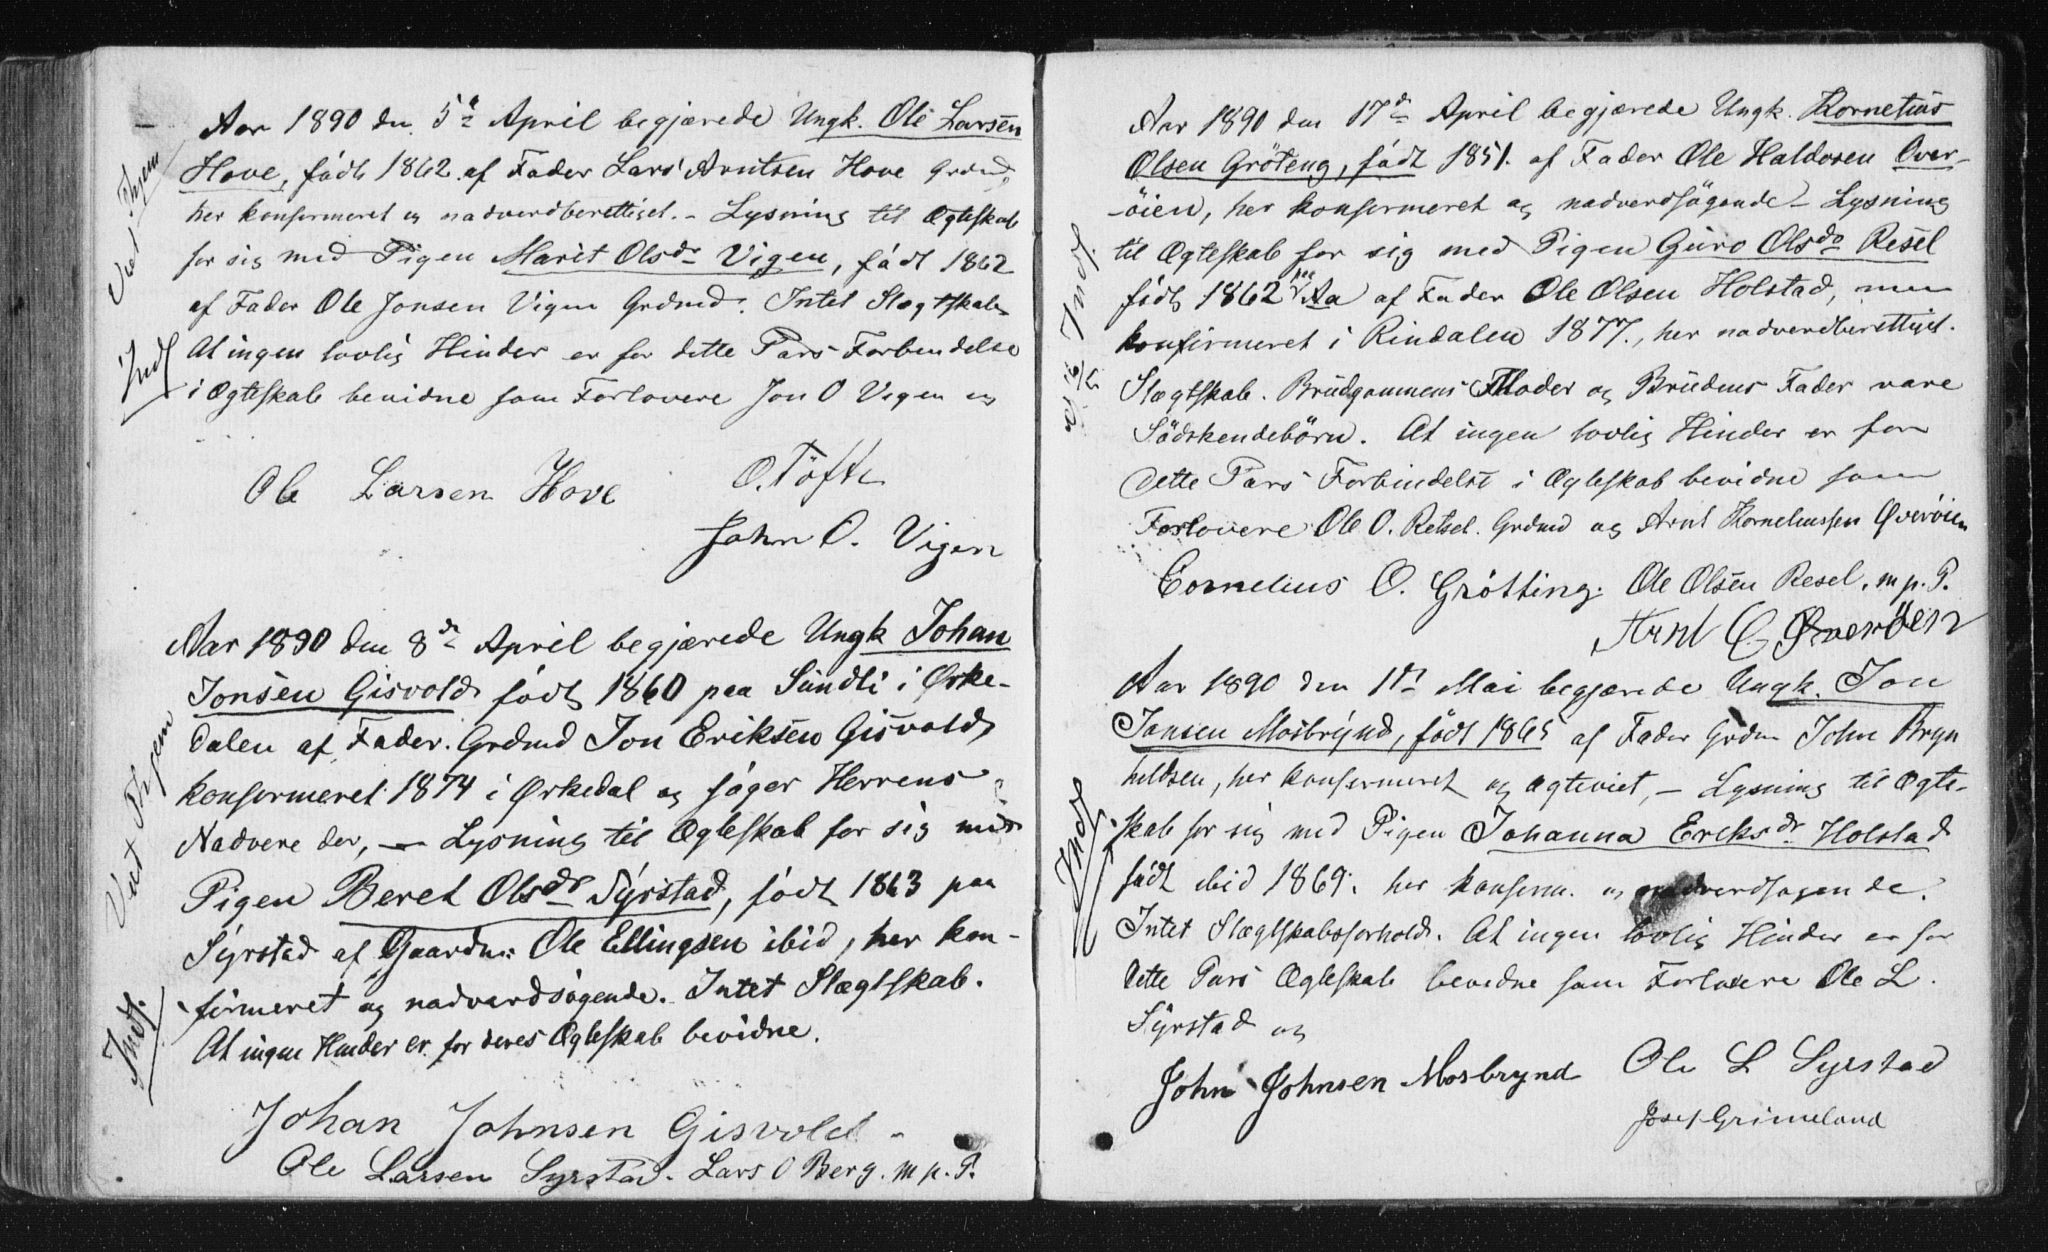 Aar 1890 den 5te April begjærede Ungk. Ole Larsen
Hove, födt 1862 af Fader Lars Arntsen Hove Grdmd,
her konfirmeret og nadverdberettiget. - Lysning til Ægteskab
for sig med Pigen Marit Olsdr Vigen, födt 1862
af Fader Ole Jonsen Vigen Grdmd. Intet Slægtskab.
At ingen lovlig Hinder er for dette Pars Forbindelse
i Ægteskab bevidne som Forlovere Jon O Vigen og
Ole Larsen Hove O. Töfte
John O. Vigen
Viet Thjem
Indf
Aar 1890 den 8de April begjærede Ungk Johan
Jonsen Gisvold födt 1860 paa Sundli i Ørke-
dalen af Fader. Grdmd Jon Eriksen Gisvold,
konfirmeret 1874 i Ørkedal og söger Herrens
Nadvere der, — Lysning til Ægteskab for sig med
Pigen Beret Olsdr Syrstad, födt 1863 paa
Syrstad af Gaardm: Ole Ellingsen ibid, her kon-
firmeret og nadverdsögende. Intet Slægtskab.
At ingen Hinder er for deres Ægteskab bevidne.
Johan Johnsen Gisvold -
Ole Larsen Syrstad. Lars O Berg. m p. P.
Viet Thjem
Indf.
Aar 1890 den 17de April begjærede Ungk. Kornelius
Olsen Gröteng, födt 1851. af Fader Ole Haldosen Över-
-öien, her konfirmeret og nadverdsögende - Lysning
til Ægteskab for sig med Pigen Guro Olsdr Resel
födt 1862 paa Aa af Fader Ole Olsen Holstad, men
konfirmeret i Rindalen 1877., her nadverdberettiget.
Slægtskab. Brudgommens Moder og Brudens Fader vare
Södskendebörn. At ingen lovlig Hinder er for
dette Pars Forbindelse i Ægteskab bevidne som
Forlovere Ole O. Retsel. Grdmd og Arnt Korneliussen Øveröien
Cornelius O. Grötting. Ole Olsen Resel. m p. P.
Arnt C Øveröien
Indf.
Aar 1890 den 1te Mai begjærede Ungk. Jon
Jonsen Mosbrynd, födt 1865 af Fader Grdm John Bryn
hildsen, her konfirmeret og ægteviet, - Lysning til Ægte-
skab for sig med Pigen Johanna Eriksdr Holstad
födt ibid 1869. her konfirm. og nadverdsögende.
Intet Slægtskabsforhold. At ingen lovlig Hinder er for
dette Pars Ægteskab bevidne som Forlovere Ole L.
Syrstad og
John Johnsen Mosbrynd Ole L Syrstad
Josef Grimeland
Indf.